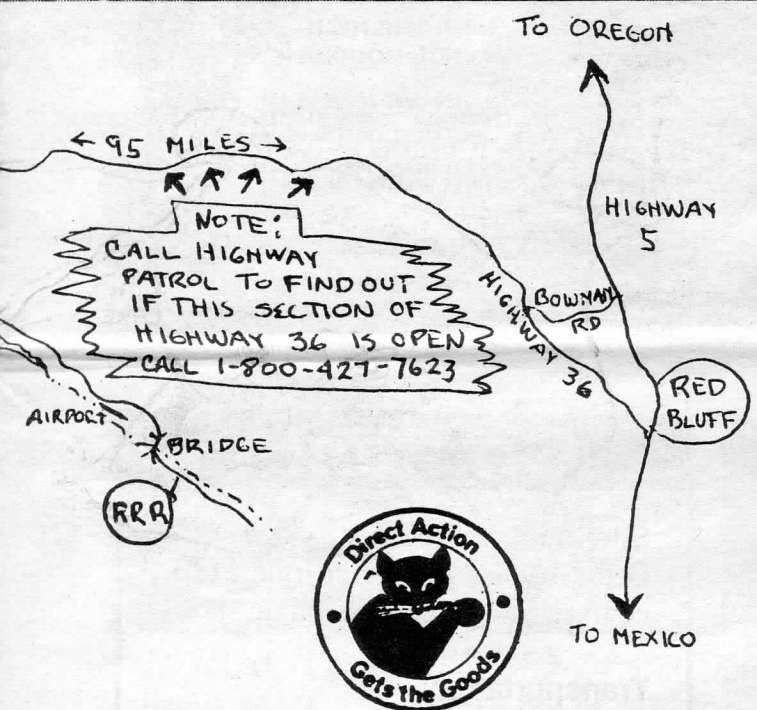 TO OREGON
← 95 MILES →
HIGHWAY
5
NOTE:
CALL HIGHWAY
PATROL TO FIND OUT
IF THIS SECTION OF
HIGHWAY 36 IS OPEN
CALL 1-800-427-7623
HIGHWAY 36
BOWMAN
RD
RED
BLUFF
AIRPORT
BRIDGE
RRR
Direct Action
Gets the Goods
TO MEXICO